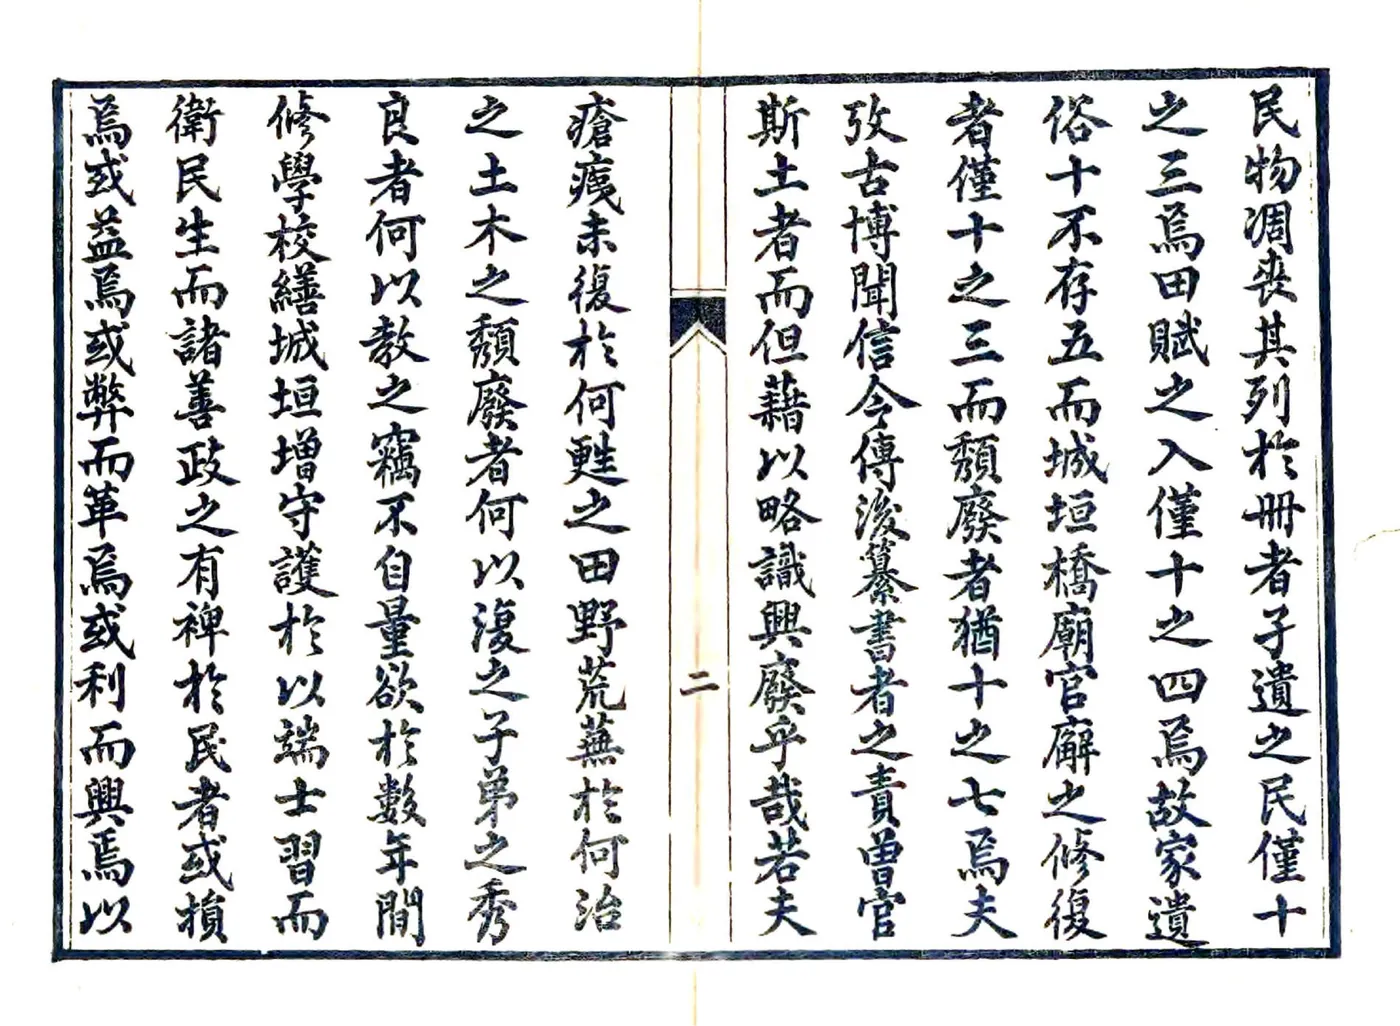 民物凋喪其列於冊者孑遺之民僅十
之三焉田賦之入僅十之四焉故家遺
俗十不存五而城垣橋廟官廨之修復
者僅十之三而頹廢者猶十之七焉夫
攷古博聞信今傳後纂書者之責曾官
斯土者而但藉以略識興廢乎哉若夫
二
瘡痍未復於何甦之田野荒蕪於何治
之土木之頹廢者何以復之子弟之秀
良者何以教之竊不自量欲於數年間
修學校繕城垣增守護於以端士習而
衛民生而諸善政之有裨於民者或損
焉或益焉或弊而革焉或利而興焉以